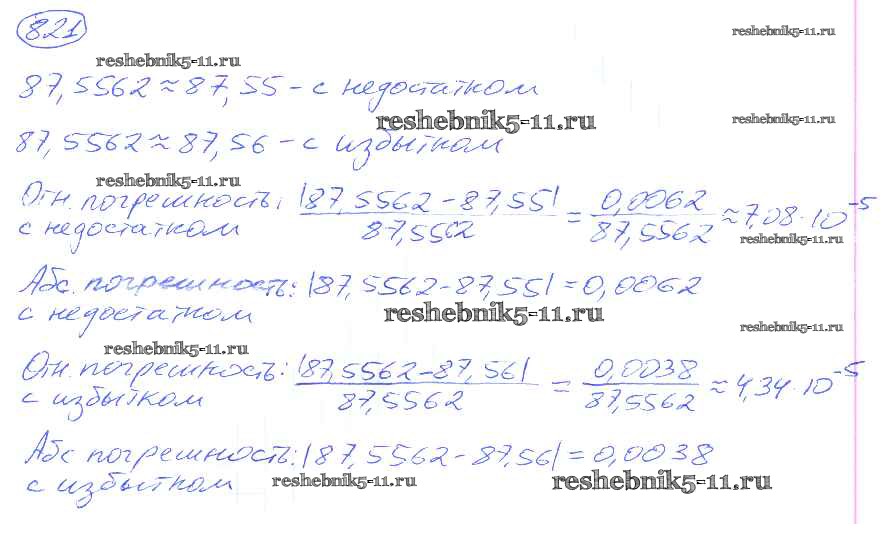 821
reshebnik5-11.ru
reshebnik5-11.ru
87,5562 ≈ 87,55 - с недостатком
reshebnik5-11.ru
reshebnik5-11.ru
87,5562 ≈ 87,56 - с избытком
reshebnik5-11.ru
Отн. погрешность: |87,5562 - 87,55| / 87,5562 = 0,0062 / 87,5562 ≈ 7,08 · 10^-5
с недостатком
reshebnik5-11.ru
Абс. погрешность: |87,5562 - 87,55| = 0,0062
с недостатком
reshebnik5-11.ru
reshebnik5-11.ru
reshebnik5-11.ru
Отн. погрешность: |87,5562 - 87,56| / 87,5562 = 0,0038 / 87,5562 ≈ 4,34 · 10^-5
с избытком
Абс погрешность: |87,5562 - 87,56| = 0,0038
с избытком
reshebnik5-11.ru
reshebnik5-11.ru